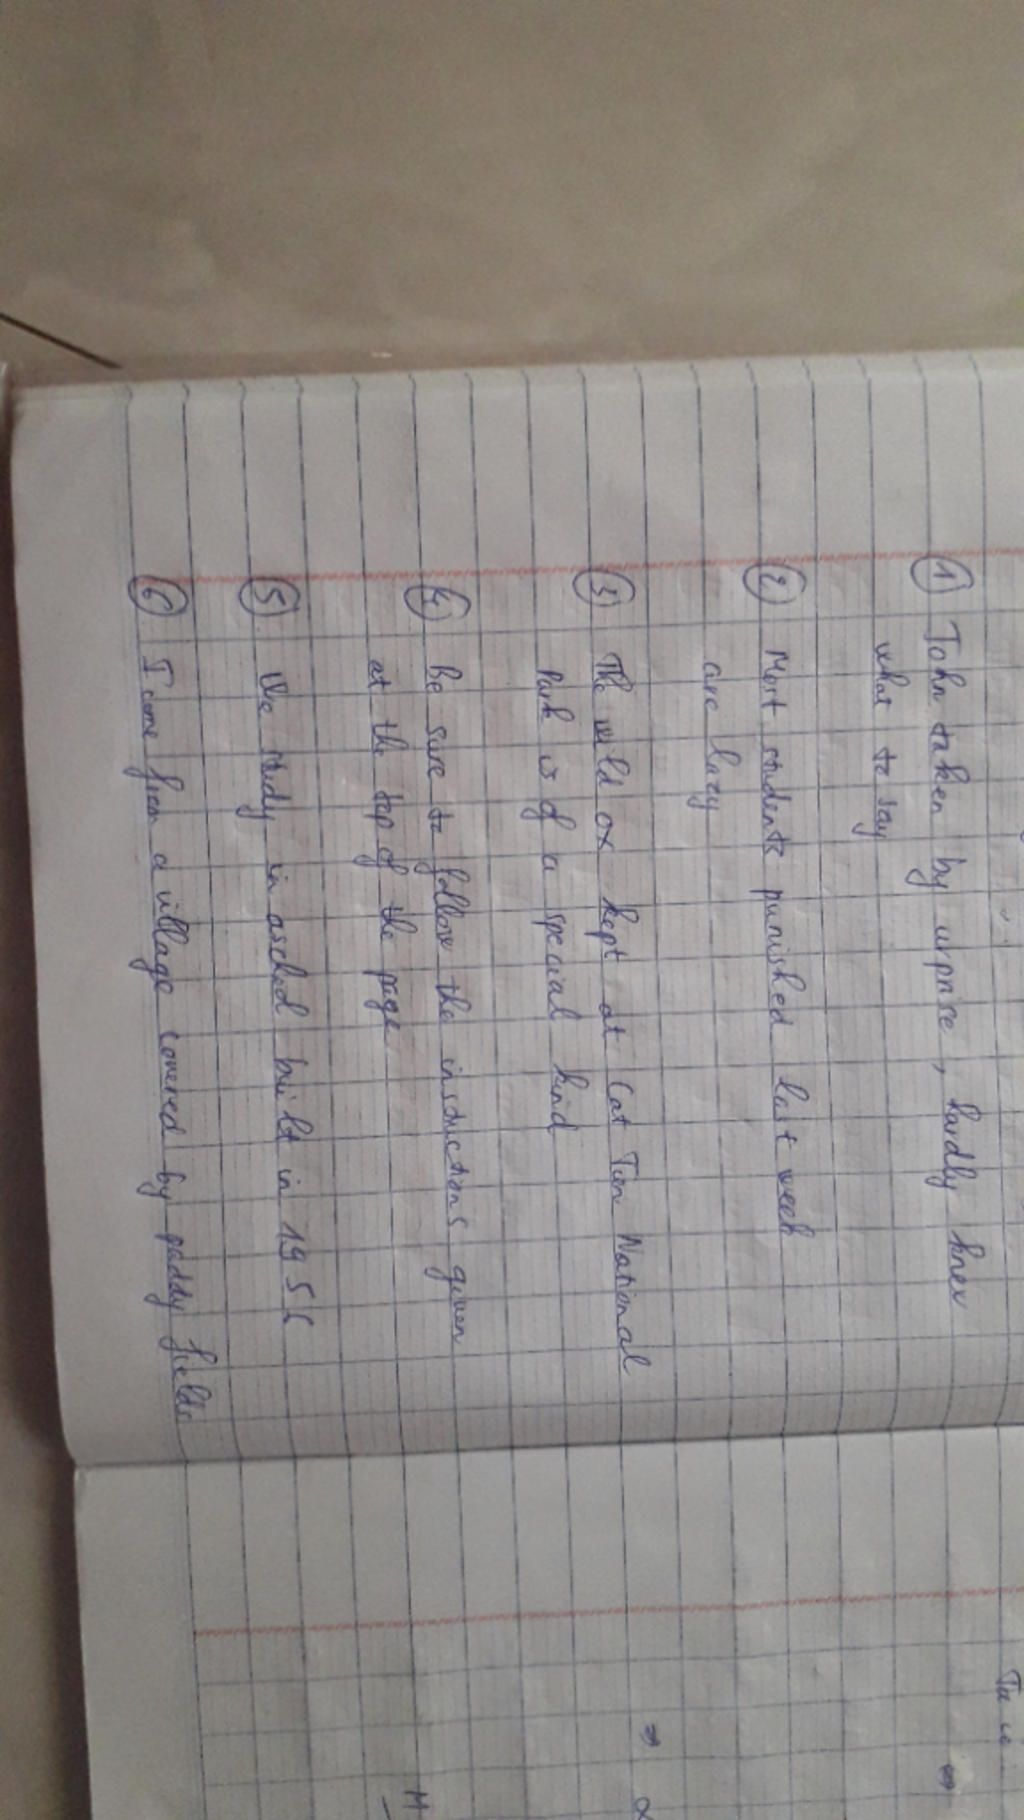 ① John taken by urprise, hardly knew
what to say
② Most students punished last week
are lazy
③ The wild ox kept at Cat Tien National
Park is of a special kind
④ Be sure to follow the instructions given
at the top of the page
⑤ We study in aschool built in 1955
⑥ I come from a village covered by paddy fields